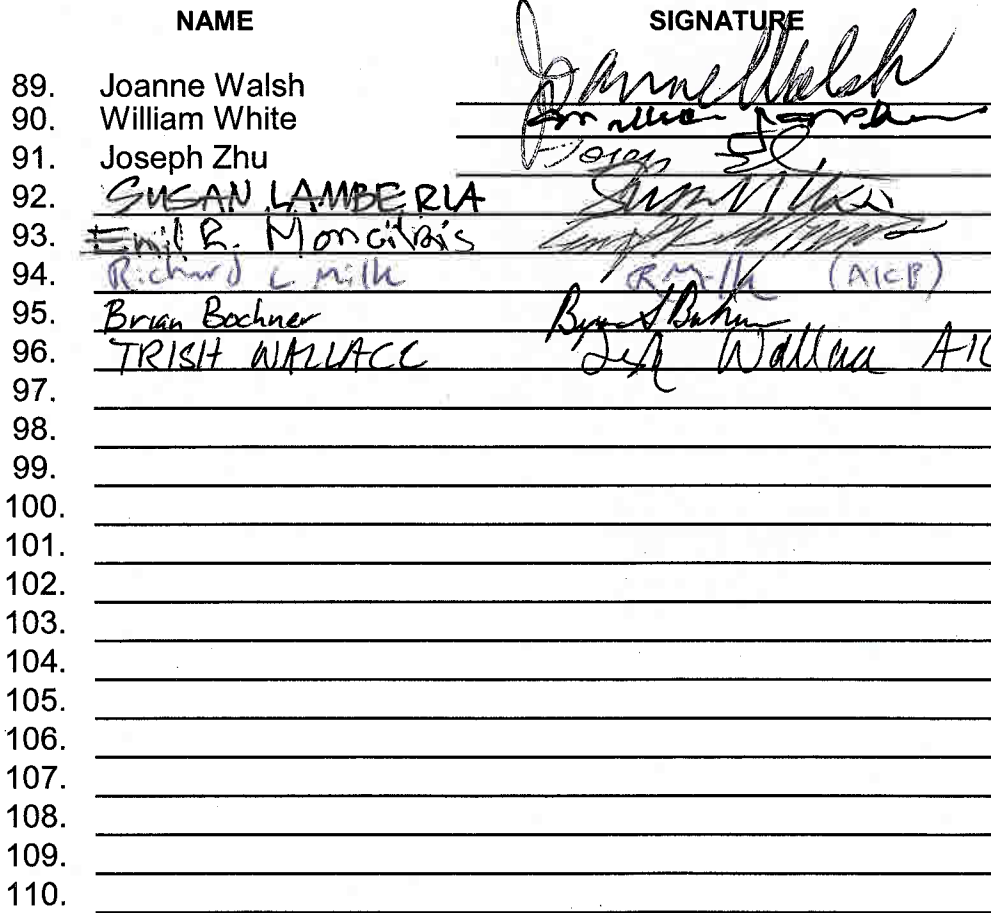 NAME SIGNATURE
89. Joanne Walsh Joanne Walsh
90. William White
91. Joseph Zhu
92. SUSAN LAMBERIA
93. Emil R. Moncivais
94. Richard L Milk R Milk (AICP)
95. Brian Bochner
96. TRISH WALLACE Trish Wallace AIC
97.
98.
99.
100.
101.
102.
103.
104.
105.
106.
107.
108.
109.
110.